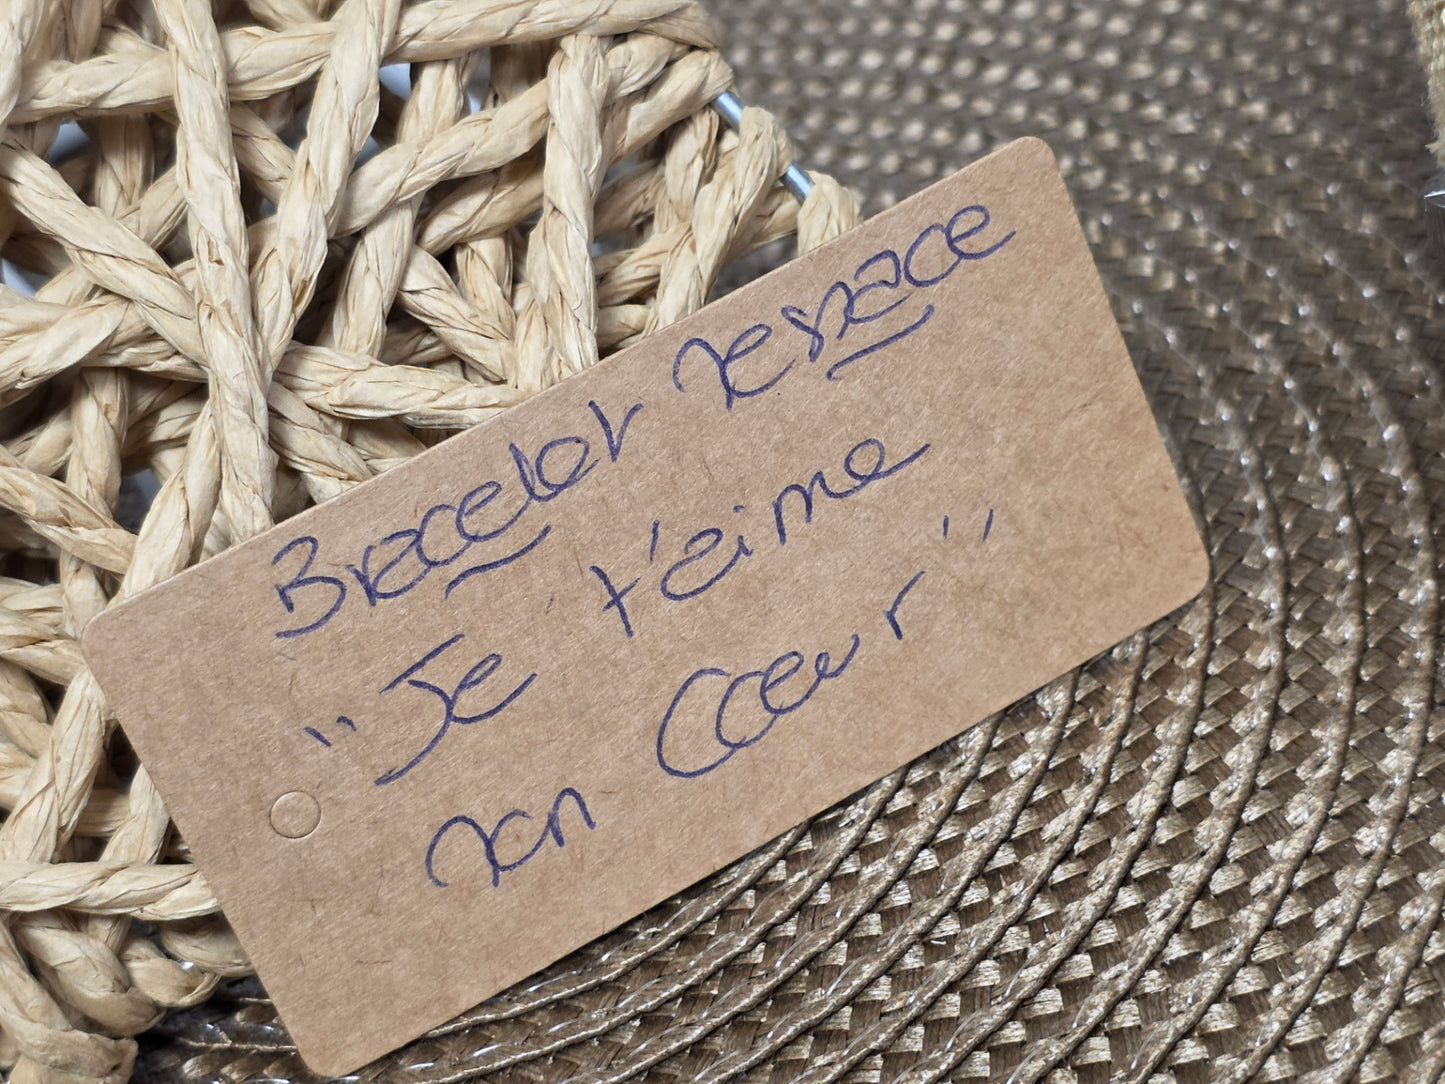 Bracelet
"Je t'aime
Mon Coeur"